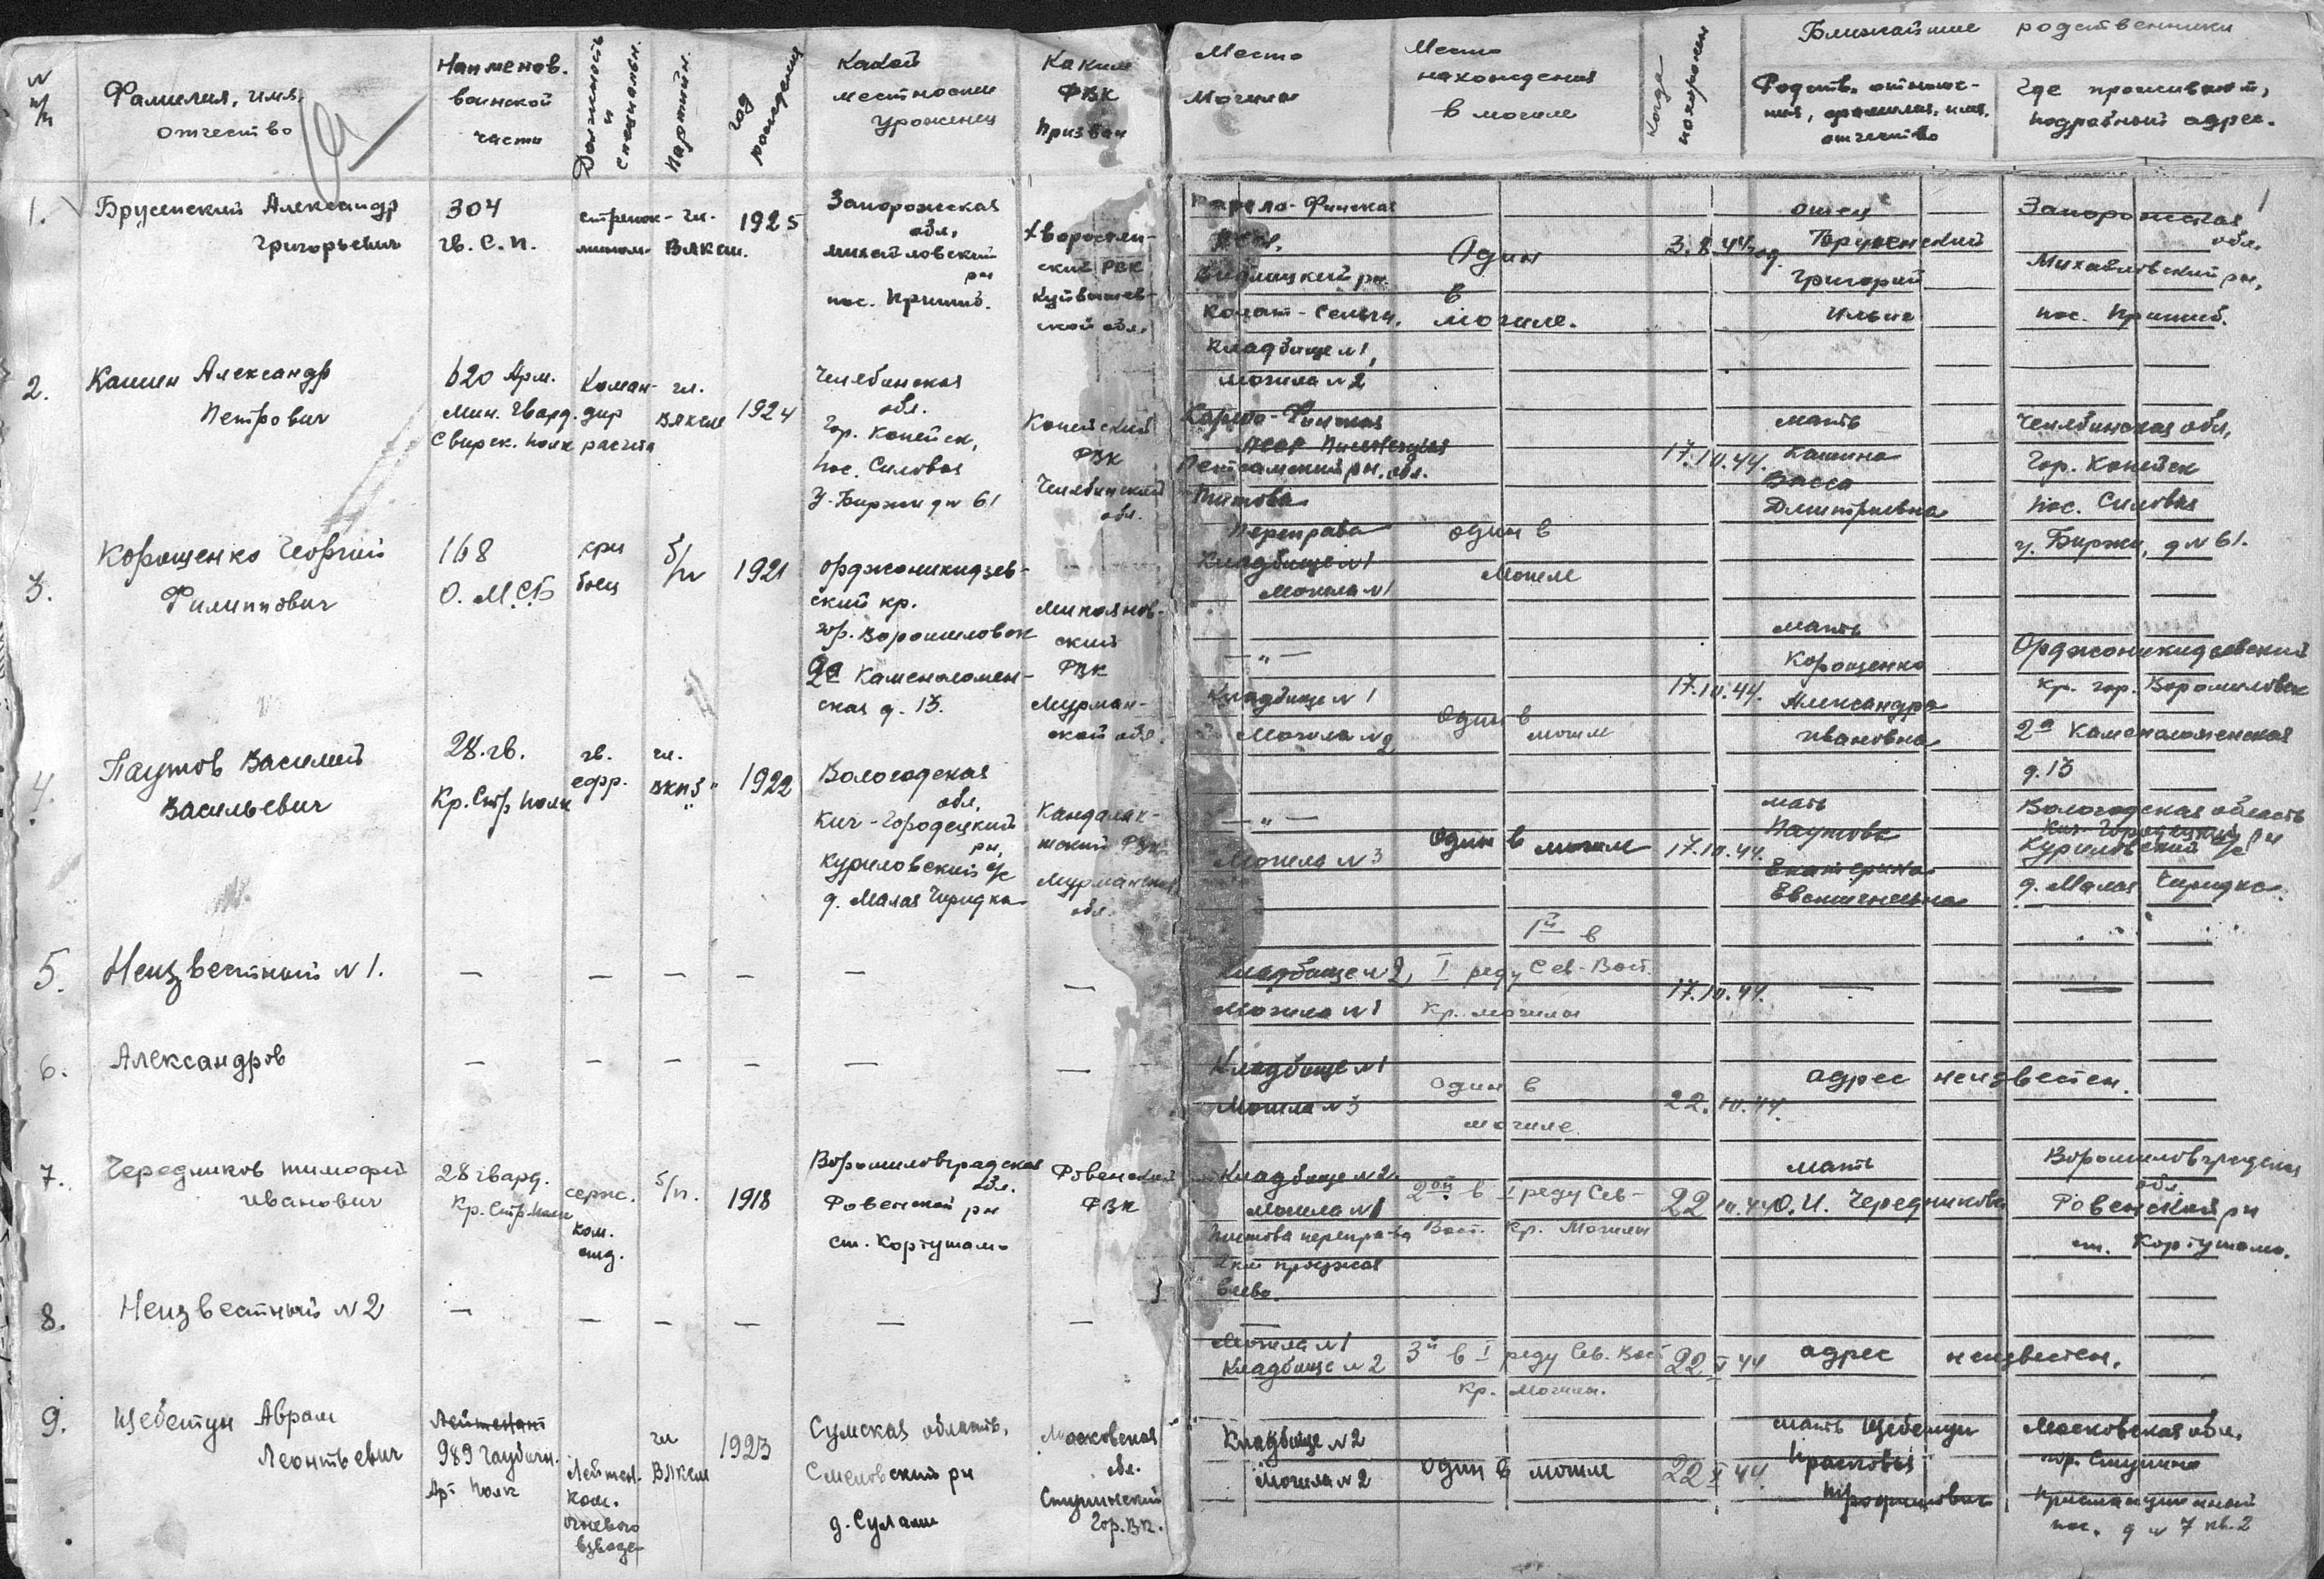 N п/п
Фамилия, имя, отчество
Наименов. воинской части
Должность и специальн.
Партийн.
год рождения
Какой местности уроженец
Каким РВК призван
Место могилы
Место нахождения в могиле
Когда похоронен
Ближайшие родственники
Родств. отношения, фамилия, имя, отчество
Где проживают, подробный адрес.
1
1. Брусенский Александр
Григорьевич
304
гв. С. п.
стрелок-
чл.
ВЛКСМ.
1925
Запорожская
обл.
Михайловский
рн
пос. Пришиб.
Хворостян-
ский РВК
Куйбышев-
ской обл.
Карело-Финская
Видлицкий рн.
Колат-Сельги.
Кладбище N1,
могила N2
Один
в
могиле.
3.8.44 год.
отец
Брусенский
Григорий
Запорожская
обл.
Михайловский рн,
пос. Пришиб.
2. Кашин Александр
Петрович
620 Арм.
Мин. Гвард.
Свирск. полк
Коман-
дир
расчета
чл.
ВЛКСМ
1924
Челябинская
обл.
Гор. Копейск,
пос. Силовая
У. Биржи д N 61
Копейский
РВК
Челябинский
обл.
Карело-Финская
Петсамский рн. обл.
Титова
переправа
Кладбище N1
Могила N1
один в
могиле
17.10.44.
мать
Кашина
Васса
Дмитриевна
Челябинская обл,
Гор. Копейск
пос. Силовая
у. Биржи, д N 61.
3. Корощенко Георгий
Филиппович
168
О. М.С.Б
кр-ц
боец
б/п
1921
Орджоникидзев-
ский кр.
гор. Ворошиловск
2я Каменоломен-
ская д. 13.
Микоянов-
ский
РВК
Мурман-
ской обл.
— " —
Кладбище N 1
Могила N2
один в
могиле
17.10.44.
мать
Корощенко
Александра
Ивановна
Орджоникидзевский
кр. гор. Ворошиловск
2я Каменоломенская
д. 13
4. Паутов Василий
Васильевич
28. гв.
Кр. Стр. полк
гв.
ефр.
чл.
ВКПб"
1922
Вологодская
обл,
Кич-Городецкий
рн,
Куриловский с/с
д. Малая Чиридка
Кандалак-
шский РВК
Мурманская
обл.
— " —
Могила N 3
один в могиле
17.10.44.
мать
Паутова
Екатерина
Вологодская область
Кич-Городецкий рн
Куриловский с/с
д. Малая Чиридка.
5. Неизвестный N 1.
— — — — — —
Кладбище N 2,
Могила N 1
1й в
I реду Сев-Вост.
Кр. могилы
17.10.44.
— —
6. Александров
— — — — — —
Кладбище N1
Могила N3
один в
могиле
22.10.44.
адрес неизвестен.
7. Чередников Тимофей
Иванович
28 гвард.
Кр. Стр. полк
серж.
ком.
отд.
б/п.
1918
Ворошиловградская
обл.
Ровенской рн
ст. Картушино
Ровенский
РВК
Кладбище N2
Могила N1
Титова переправа
2 км проезжая
влево.
2ой в I реду Сев-
Вост. Кр. Могилы
22.10.44
мать
О. И. Чередникова
Ворошиловградская
обл.
Ровенский рн
ст.
8. Неизвестный N 2
— — — — — —
Могила N1
Кладбище N 2
3й в I реду Сев. Вост
Кр. могилы.
22 X 44
адрес неизвестен.
9. Щебетун Абрам
Леонтьевич
Лейтенант
989 Гаубичн.
Арт полк
Лейтен.
ком.
огневого
взвода
чл
ВЛКСМ
1923
Сумская область,
Смеловский рн
д. Сулами
Московская
обл.
Ступинский
Гор. ВК.
Кладбище N2
Могила N2
один в могиле
22 X 44
мать Щебетун
Прасковья
Московская обл,
гор. Ступино
пос. д N 7 кв. 2